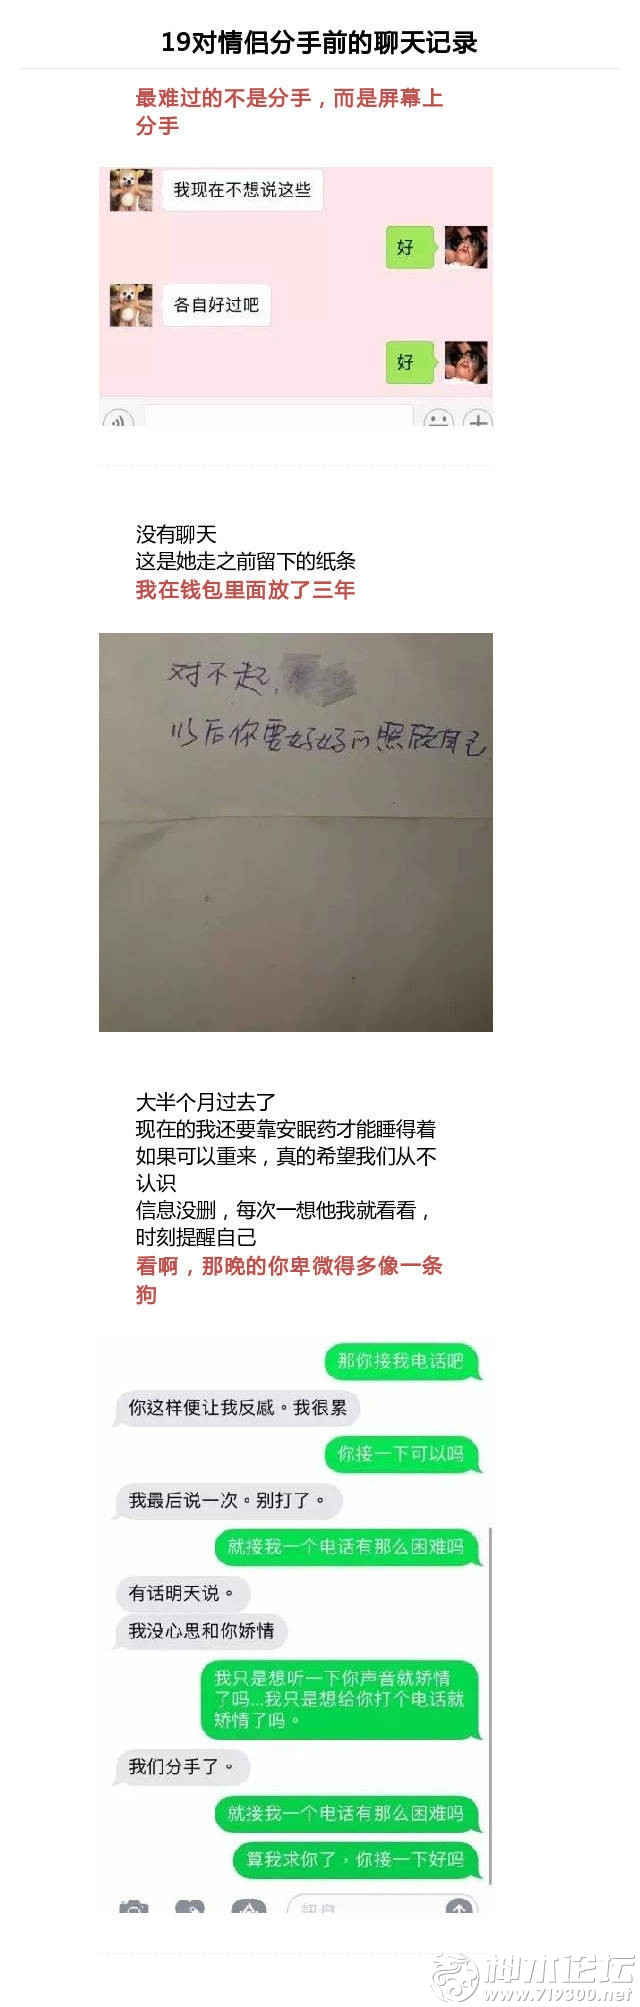 19对情侣分手前的聊天记录
最难过的不是分手，而是屏幕上
分手
我现在不想说这些
好
各自好过吧
好
没有聊天
这是她走之前留下的纸条
我在钱包里面放了三年
对不起，
以后你要好好的照顾自己
大半个月过去了
现在的我还要靠安眠药才能睡得着
如果可以重来，真的希望我们从不
认识
信息没删，每次一想他我就看看，
时刻提醒自己
看啊，那晚的你卑微得多像一条
狗
那你接我电话吧
你这样便让我反感。我很累
你接一下可以吗
我最后说一次。别打了。
就接我一个电话有那么困难吗
有话明天说。
我没心思和你娇情
我只是想听一下你声音就矫情
了吗...我只是想给你打个电话就
矫情了吗。
我们分手了。
就接我一个电话有那么困难吗
算我求你了，你接一下好吗
訊息
神木论坛
www.719300.net